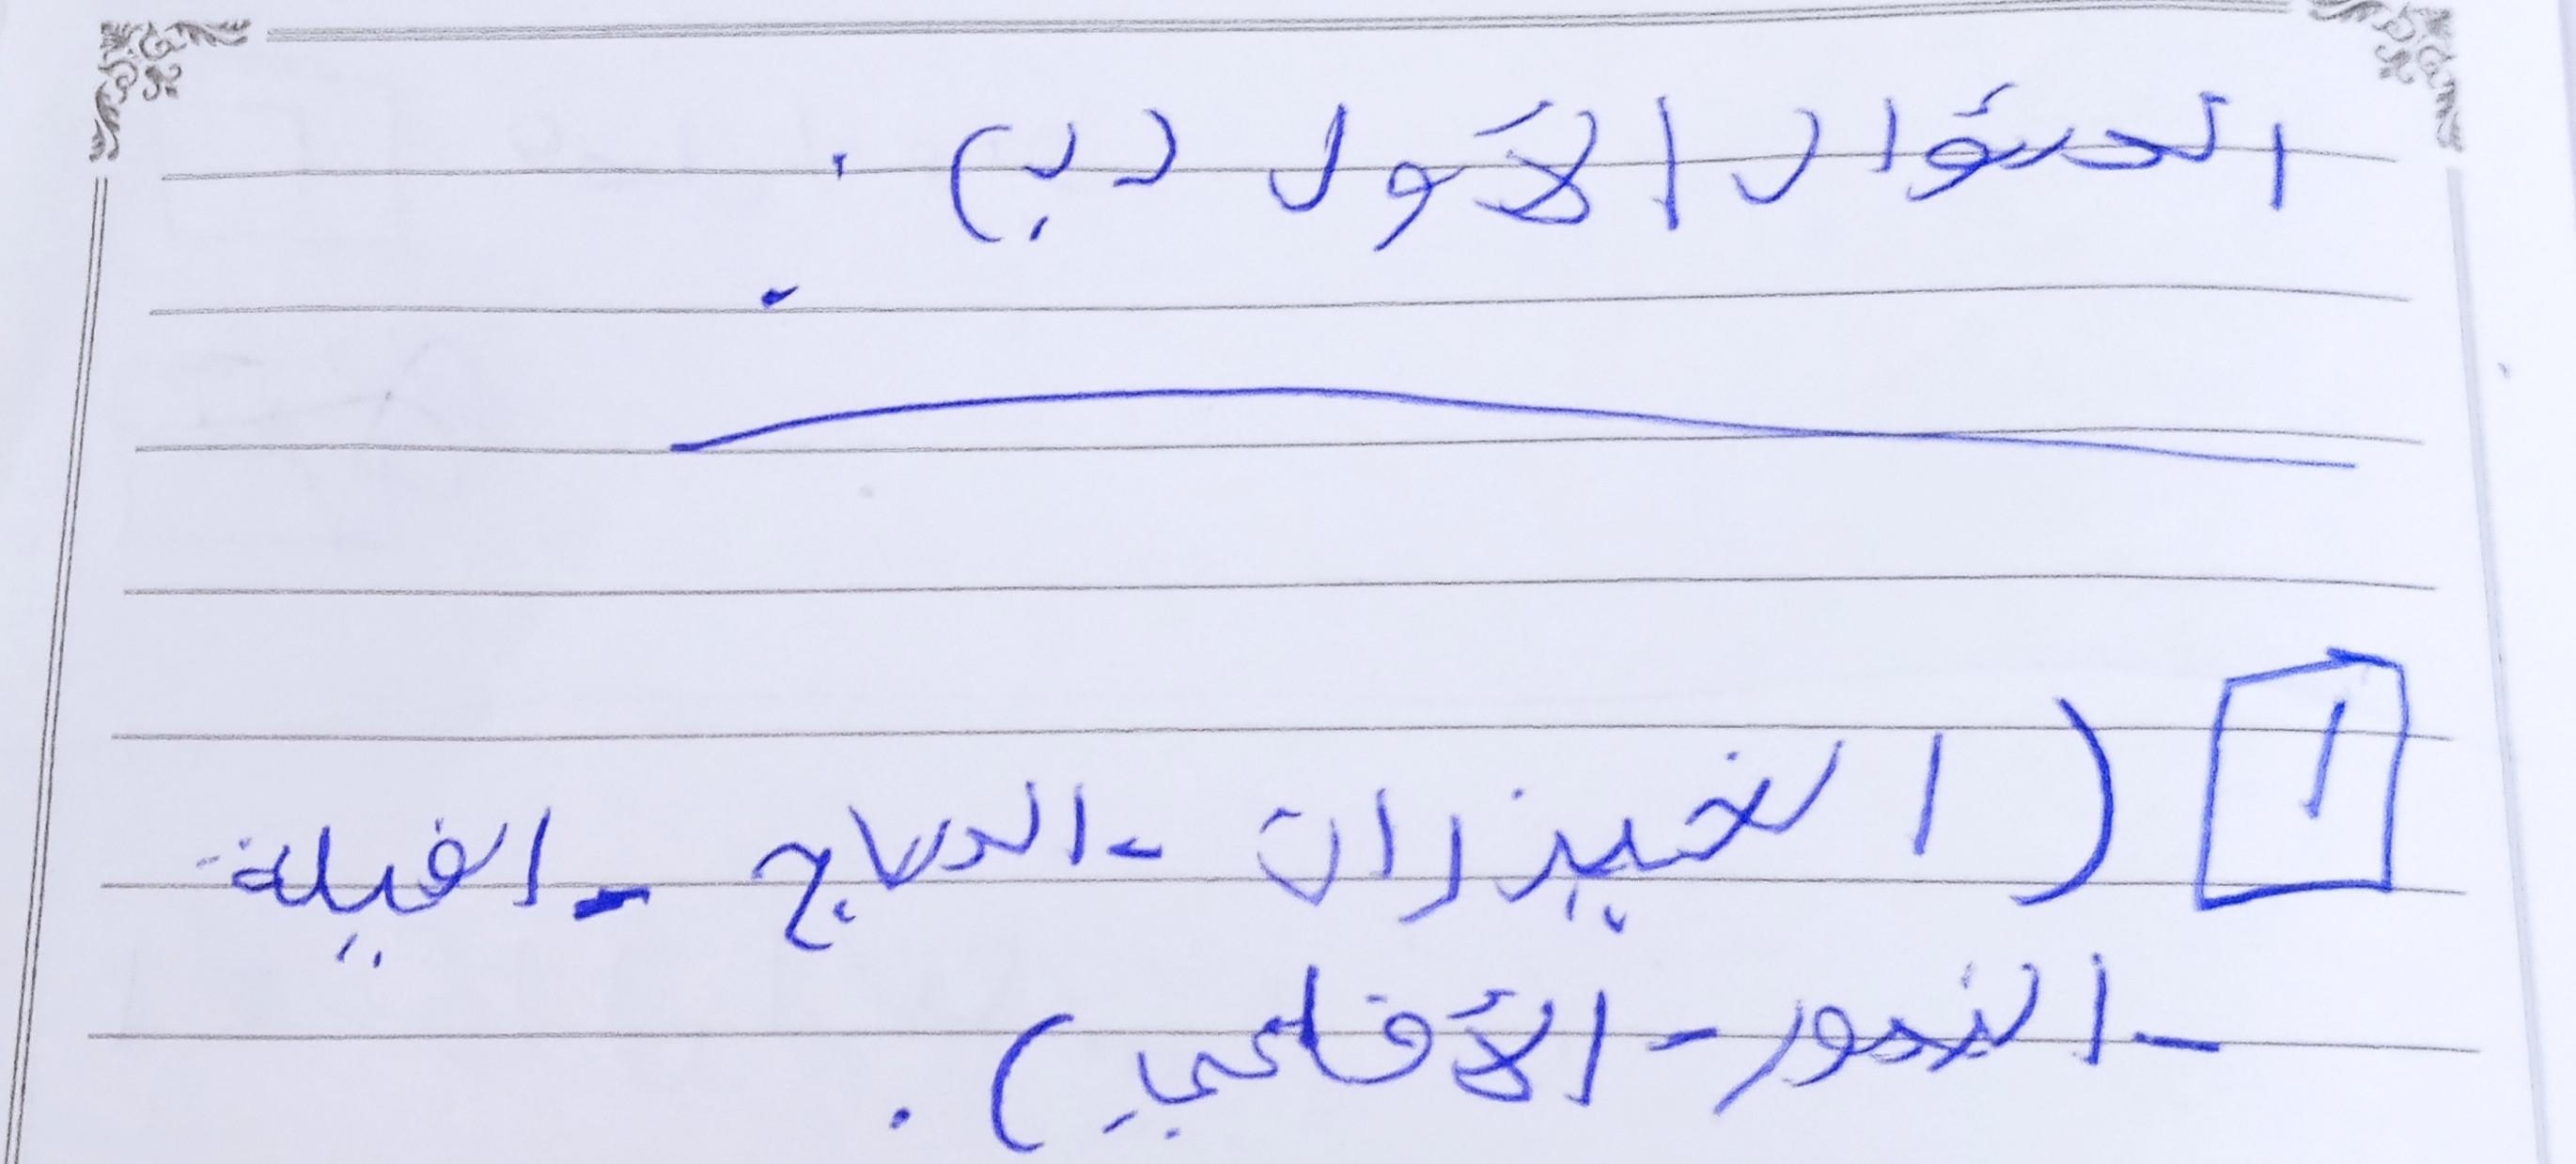 السؤال الأول (ب) :
١ ( الخيزران - العاج - الفيلة
- النمور - الأفاعي ) .